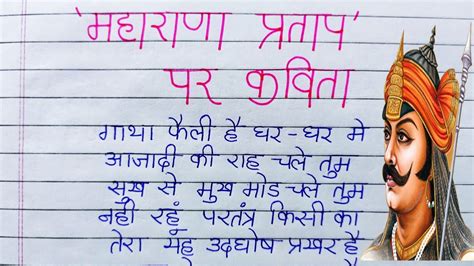 'महाराणा प्रताप'
पर कविता
गाथा फैली है घर-घर मे
आजादी की राह चले तुम
सुख से मुख मोड चले तुम
नही रहूं परतंत्र किसी का
तेरा यह उदघोष प्रखर है